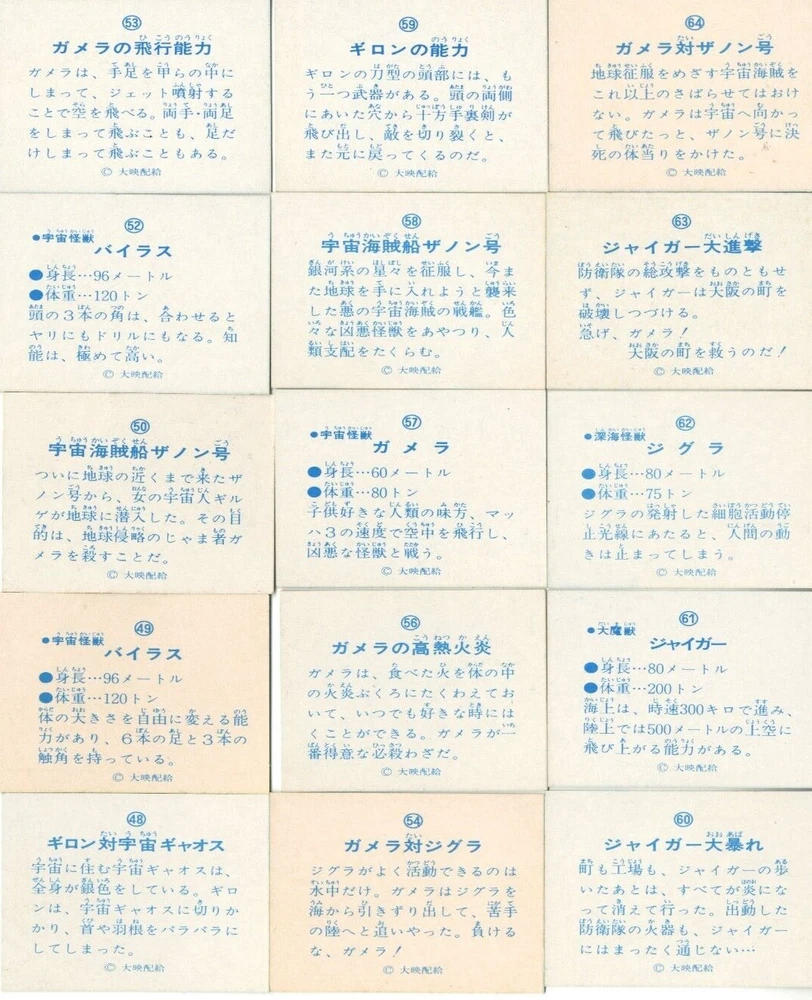 53
ガメラの飛行能力
ガメラは、手足を甲らの中に
しまって、ジェット噴射する
ことで空を飛べる。両手・両足
をしまって飛ぶことも、足だ
けしまって飛ぶこともある。
© 大映配給
59
ギロンの能力
ギロンの刀型の頭部には、も
う一つ武器がある。頭の両側
にあいた穴から十方手裏剣が
飛び出し、敵を切り裂くと、
また元に戻ってくるのだ。
© 大映配給
64
ガメラ対ザノン号
地球征服をめざす宇宙海賊を
これ以上のさばらせてはおけ
ない。ガメラは宇宙へ向かっ
て飛びたっと、ザノン号に決
死の体当りをかけた。
© 大映配給
52
●宇宙怪獣
バイラス
●身長…96メートル
●体重…120トン
頭の3本の角は、合わせると
ヤリにもドリルにもなる。知
能は、極めて高い。
© 大映配給
58
宇宙海賊船ザノン号
銀河系の星々を征服し、今ま
た地球を手に入れようと襲来
した悪の宇宙海賊の戦艦。色
々な凶悪怪獣をあやつり、人
類支配をたくらむ。
© 大映配給
63
ジャイガー大進撃
防衛隊の総攻撃をものともせ
ず、ジャイガーは大阪の町を
破壊しつづける。
急げ、ガメラ!
大阪の町を救うのだ!
© 大映配給
50
宇宙海賊船ザノン号
ついに地球の近くまで来たザ
ノン号から、女の宇宙人ギル
ゲが地球に潜入した。その目
的は、地球侵略のじゃま者ガ
メラを殺すことだ。
© 大映配給
57
●宇宙怪獣
ガメラ
●身長…60メートル
●体重…80トン
子供好きな人類の味方、マッ
ハ3の速度で空中を飛行し、
凶悪な怪獣と戦う。
© 大映配給
62
●深海怪獣
ジグラ
●身長…80メートル
●体重…75トン
ジグラの発射した細胞活動停
止光線にあたると、人間の動
きは止まってしまう。
© 大映配給
49
●宇宙怪獣
バイラス
●身長…96メートル
●体重…120トン
体の大きさを自由に変える能
力があり、6本の足と3本の
触角を持っている。
© 大映配給
56
ガメラの高熱火炎
ガメラは、食べた火を体の中
の火炎ぶくろにたくわえてお
いて、いつでも好きな時には
くことができる。ガメラが一
番得意な必殺わざだ。
© 大映配給
61
●大魔獣
ジャイガー
●身長…80メートル
●体重…200トン
海上は、時速300キロで進み、
陸上では500メートルの上空に
飛び上がる能力がある。
© 大映配給
48
ギロン対宇宙ギャオス
宇宙に住む宇宙ギャオスは、
全身が銀色をしている。ギロ
ンは、宇宙ギャオスに切りか
かり、首や羽根をバラバラに
してしまった。
© 大映配給
54
ガメラ対ジグラ
ジグラがよく活動できるのは
水中だけ。ガメラはジグラを
海から引きずり出して、苦手
の陸へと追いやった。負ける
な、ガメラ!
© 大映配給
60
ジャイガー大暴れ
町も工場も、ジャイガーの歩
いたあとは、すべてが炎にな
って消えて行った。出動した
防衛隊の火器も、ジャイガー
にはまったく通じない…
© 大映配給